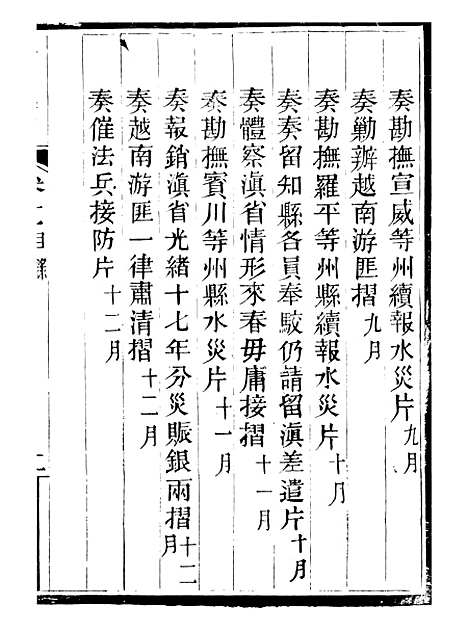 奏勘撫宣威等州續報水災片九月
奏勦辦越南游匪摺九月
奏勘撫羅平等州縣續報水災片十月
奏奏留知縣各員奉駁仍請留滇差遣片十月
奏體察滇省情形來春毋庸接摺十一月
奏勘撫賓川等州縣水災片十一月
奏報銷滇省光緒十七年分災賑銀兩摺十二月
奏越南游匪一律肅清摺十二月
奏催法兵接防片十二月